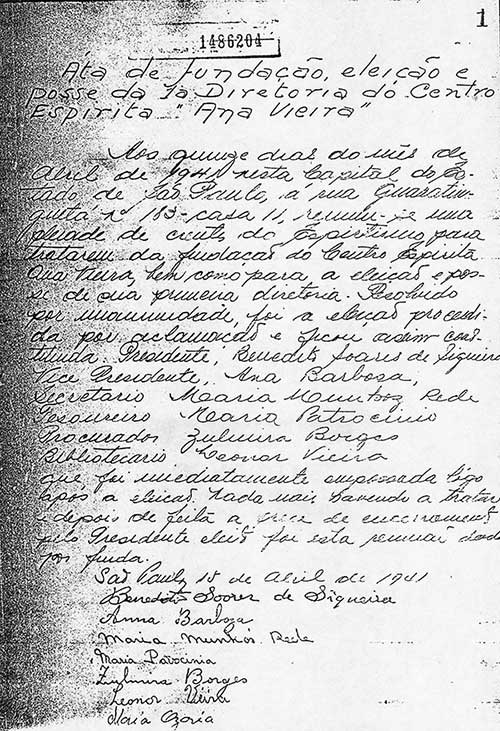 1
1486204
Áta de fundação, eleição e
posse da 1a Diretoria do Centro
Espirita "Ana Vieira"
Aos quinze dias do mês de
Abril de 1941 nesta Capital do Es-
tado de São Paulo, á rua Guaratin-
guita nº 183 - casa 11, reuniu-se uma
de crentes do Espiritismo para
tratarem da fundação do Centro Espirita
Ana Vieira, bem como para a eleição e pos-
se de sua primeira diretoria. Resolvido
por unanimidade, foi a eleição procedi-
da por aclamação e ficou assim cons-
tituida: Presidente, Benedito Soares de Siqueira
Vice Presidente, Ana Barbosa,
Secretario Maria Munhoz Rede
Tesoureiro Maria Patrocinio
Procurador Zulmira Borges
Bibliotecario Leonor Vieira
que foi imediatamente empossada logo
após a eleição. Nada mais havendo a tratar
e depois de feita a prece de encerramento
pelo Presidente eleito foi esta reunião dada
por finda.
São Paulo, 15 de Abril de 1941
Benedito Soares de Siqueira
Anna Barboza
Maria Munhós Rede
Maria Patrocinia
Zulmira Borges
Leonor Vieira
Maria